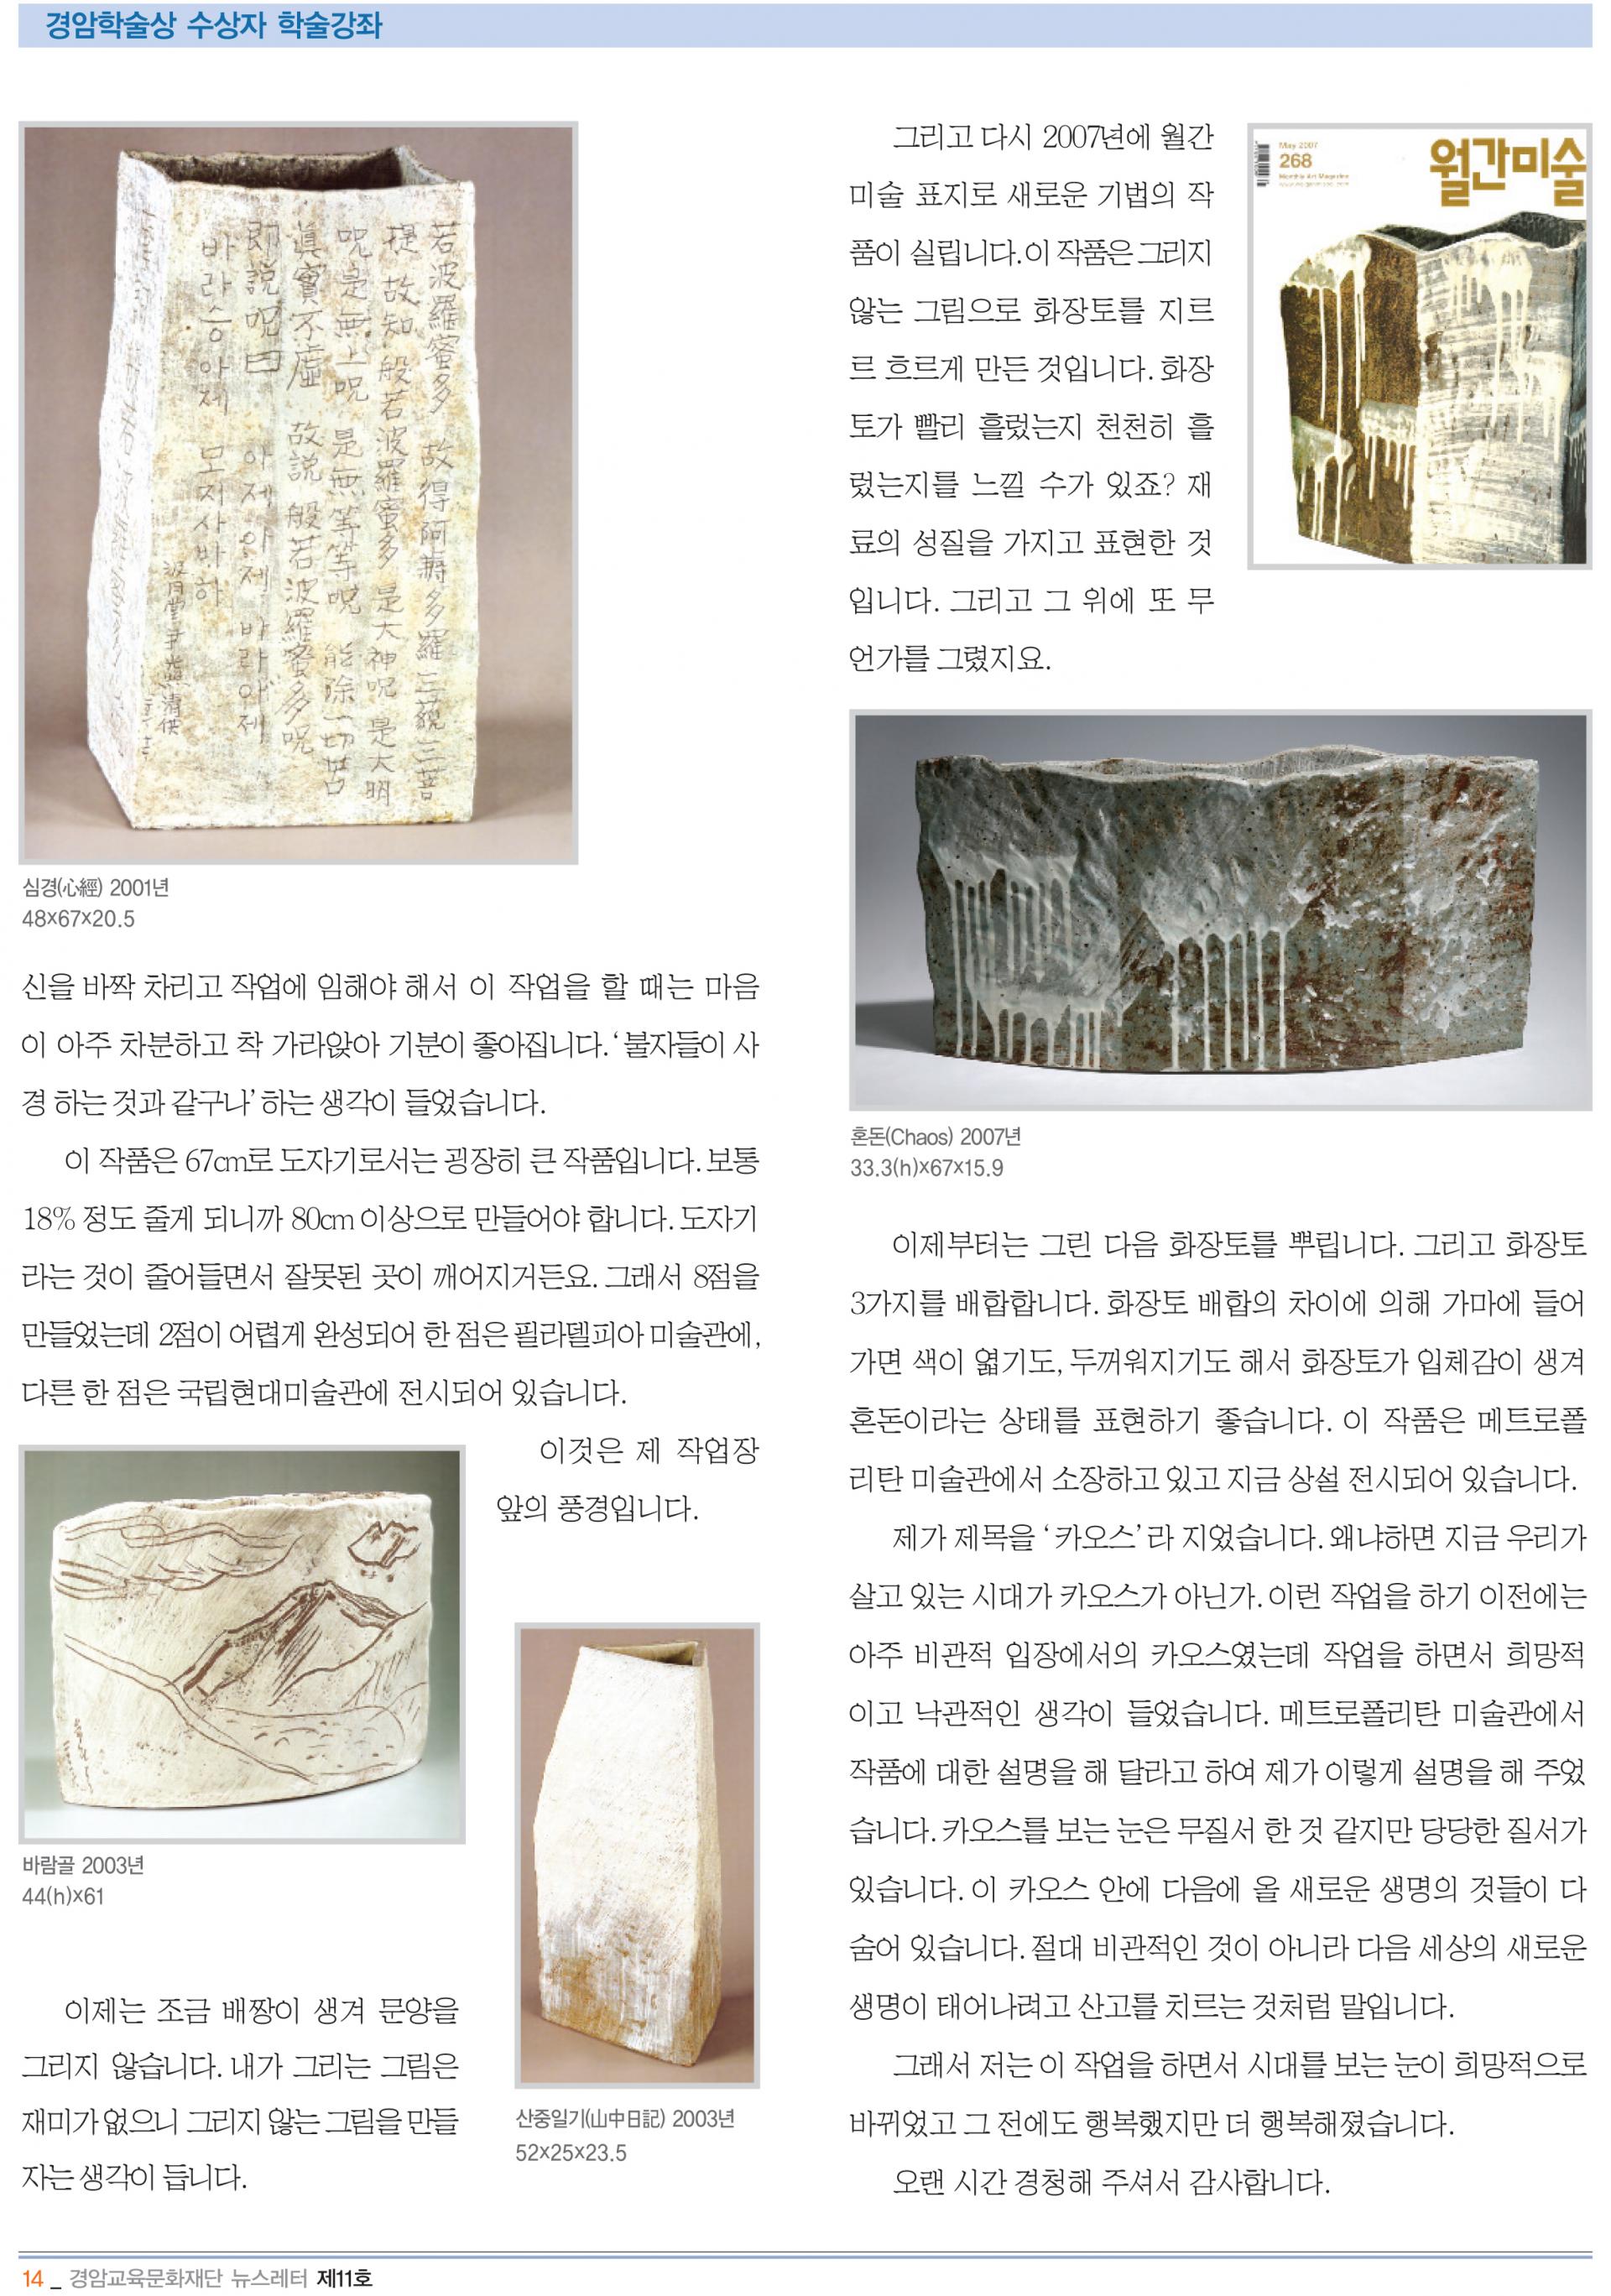 경암학술상 수상자 학술강좌
若波羅蜜多 故得阿耨多羅三藐三菩
提 故知 般若波羅蜜多 是大神呪 是大明
呪 是無上呪 是無等等呪 能除一切苦
眞實不虛 故說 般若波羅蜜多呪
卽說呪曰 아제아제 바라아제
바라승아제 모지사바하
심경(心經) 2001년
48×67×20.5
신을 바짝 차리고 작업에 임해야 해서 이 작업을 할 때는 마음
이 아주 차분하고 착 가라앉아 기분이 좋아집니다. ‘불자들이 사
경 하는 것과 같구나’ 하는 생각이 들었습니다.
이 작품은 67cm로 도자기로서는 굉장히 큰 작품입니다. 보통
18% 정도 줄게 되니까 80cm 이상으로 만들어야 합니다. 도자기
라는 것이 줄어들면서 잘못된 곳이 깨어지거든요. 그래서 8점을
만들었는데 2점이 어렵게 완성되어 한 점은 필라델피아 미술관에,
다른 한 점은 국립현대미술관에 전시되어 있습니다.
이것은 제 작업장
앞의 풍경입니다.
바람골 2003년
44(h)×61
이제는 조금 배짱이 생겨 문양을
그리지 않습니다. 내가 그리는 그림은
재미가 없으니 그리지 않는 그림을 만들
자는 생각이 듭니다.
산중일기(山中日記) 2003년
52×25×23.5
그리고 다시 2007년에 월간
미술 표지로 새로운 기법의 작
품이 실립니다. 이 작품은 그리지
않는 그림으로 화장토를 지르
르 흐르게 만든 것입니다. 화장
토가 빨리 흘렀는지 천천히 흘
렀는지를 느낄 수가 있죠? 재
료의 성질을 가지고 표현한 것
입니다. 그리고 그 위에 또 무
언가를 그렸지요.
May 2007
268
Monthly Art Magazine
월간미술
혼돈(Chaos) 2007년
33.3(h)×67×15.9
이제부터는 그린 다음 화장토를 뿌립니다. 그리고 화장토
3가지를 배합합니다. 화장토 배합의 차이에 의해 가마에 들어
가면 색이 엷기도, 두꺼워지기도 해서 화장토가 입체감이 생겨
혼돈이라는 상태를 표현하기 좋습니다. 이 작품은 메트로폴
리탄 미술관에서 소장하고 있고 지금 상설 전시되어 있습니다.
제가 제목을 ‘카오스’라 지었습니다. 왜냐하면 지금 우리가
살고 있는 시대가 카오스가 아닌가. 이런 작업을 하기 이전에는
아주 비관적 입장에서의 카오스였는데 작업을 하면서 희망적
이고 낙관적인 생각이 들었습니다. 메트로폴리탄 미술관에서
작품에 대한 설명을 해 달라고 하여 제가 이렇게 설명을 해 주었
습니다. 카오스를 보는 눈은 무질서 한 것 같지만 당당한 질서가
있습니다. 이 카오스 안에 다음에 올 새로운 생명의 것들이 다
숨어 있습니다. 절대 비관적인 것이 아니라 다음 세상의 새로운
생명이 태어나려고 산고를 치르는 것처럼 말입니다.
그래서 저는 이 작업을 하면서 시대를 보는 눈이 희망적으로
바뀌었고 그 전에도 행복했지만 더 행복해졌습니다.
오랜 시간 경청해 주셔서 감사합니다.
14 _ 경암교육문화재단 뉴스레터 제11호